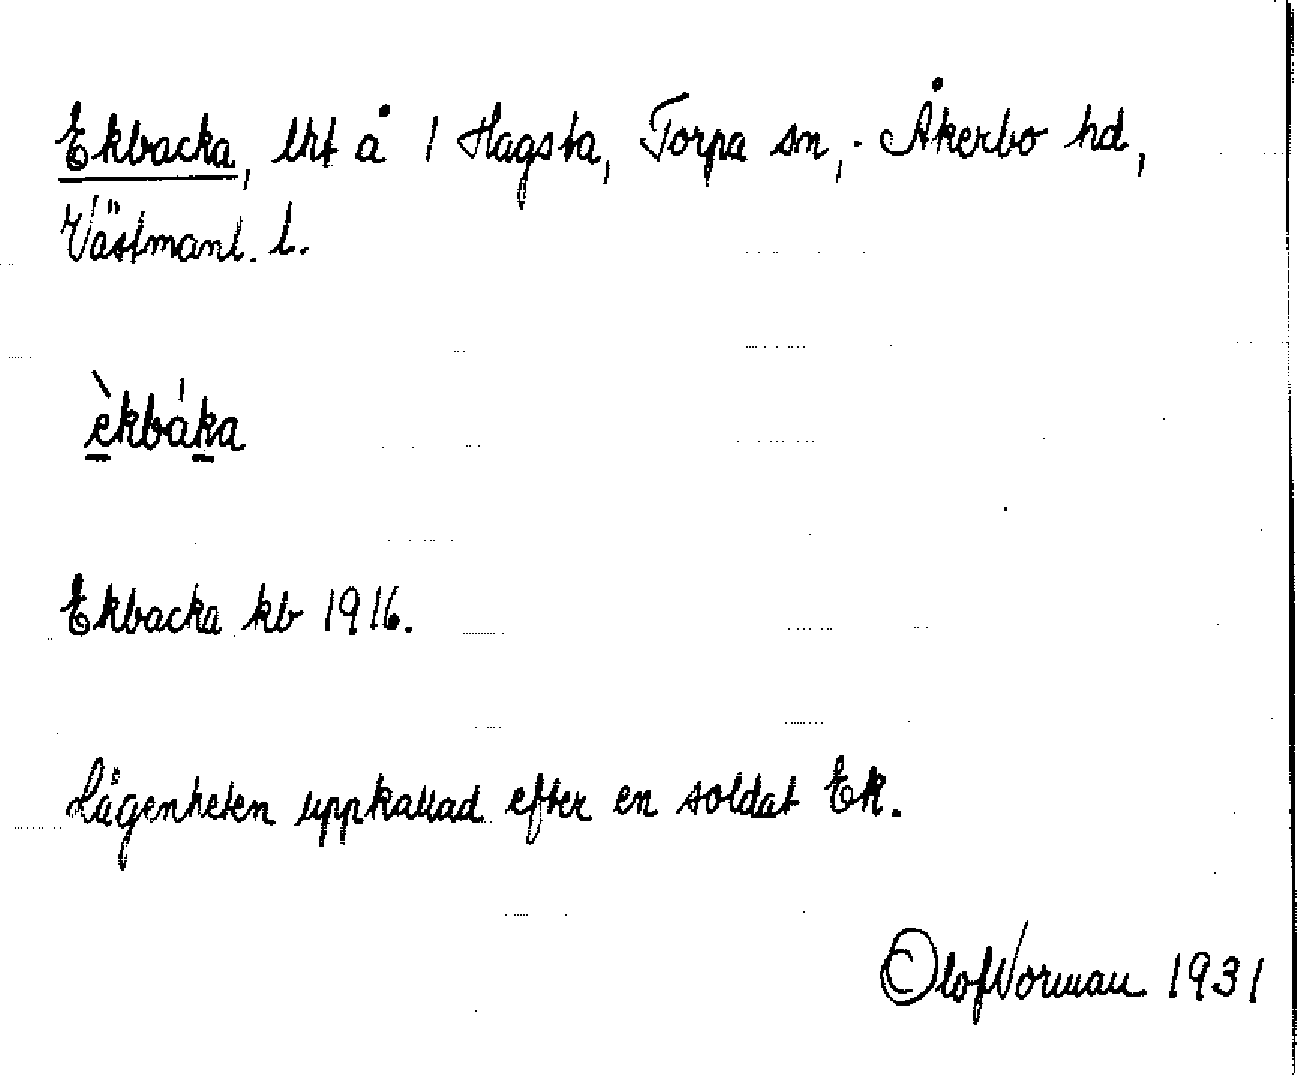 Ekbacka, lht å 1 Hagsta, Torpa sn, Åkerbo hd,
Västmanl. l.
èkbáka
Ekbacka kb 1916.
Lägenheten uppkallad efter en soldat Ek.
Olof Norman 1931